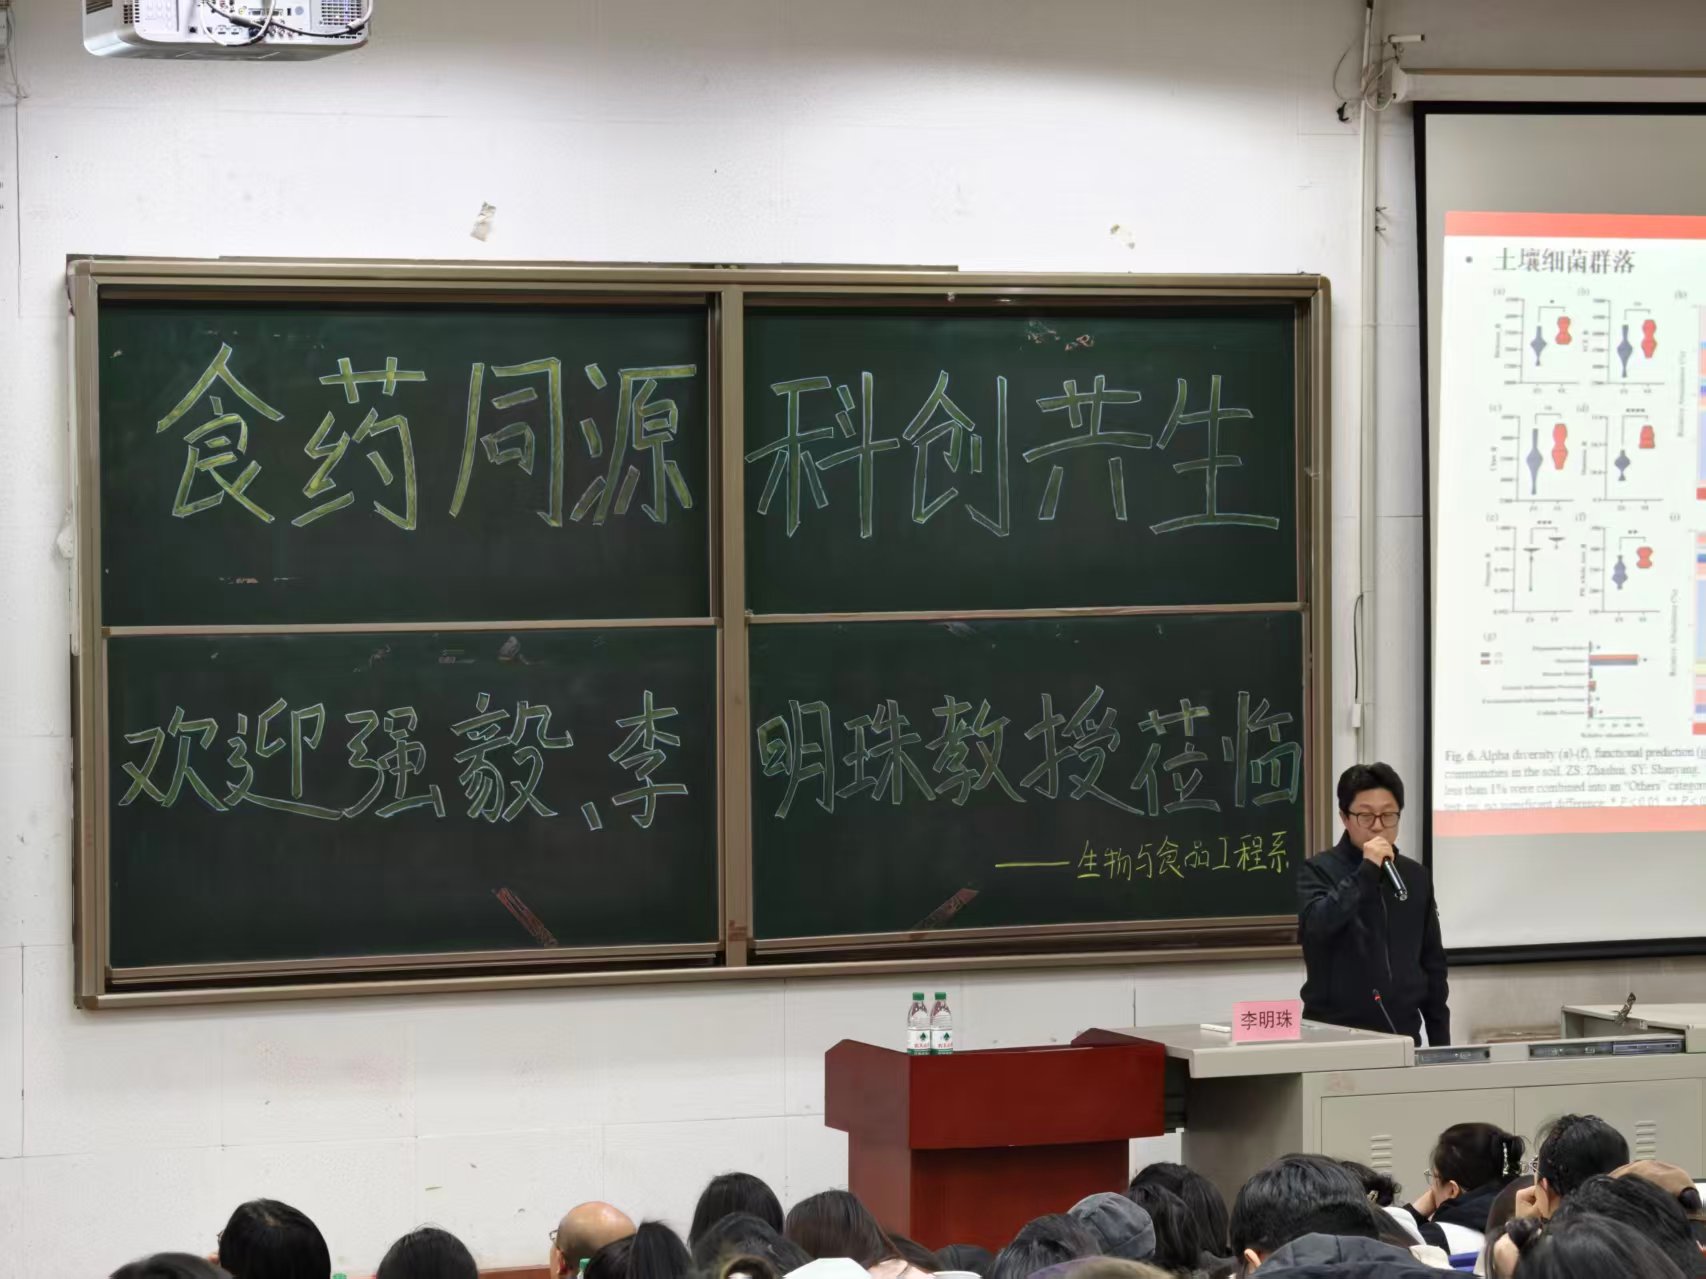 食药同源 科创共生
欢迎强毅、李明珠教授莅临
——生物与食品工程系
李明珠
• 土壤细菌群落
(a)
(b)
(c)
(d)
(e)
(f)
(g)
Fig. 6. Alpha diversity (a)-(f), functional prediction
communities in the soil. ZS: Zhashui, SY: Shanyang.
less than 1% were combined into an "Others" categor